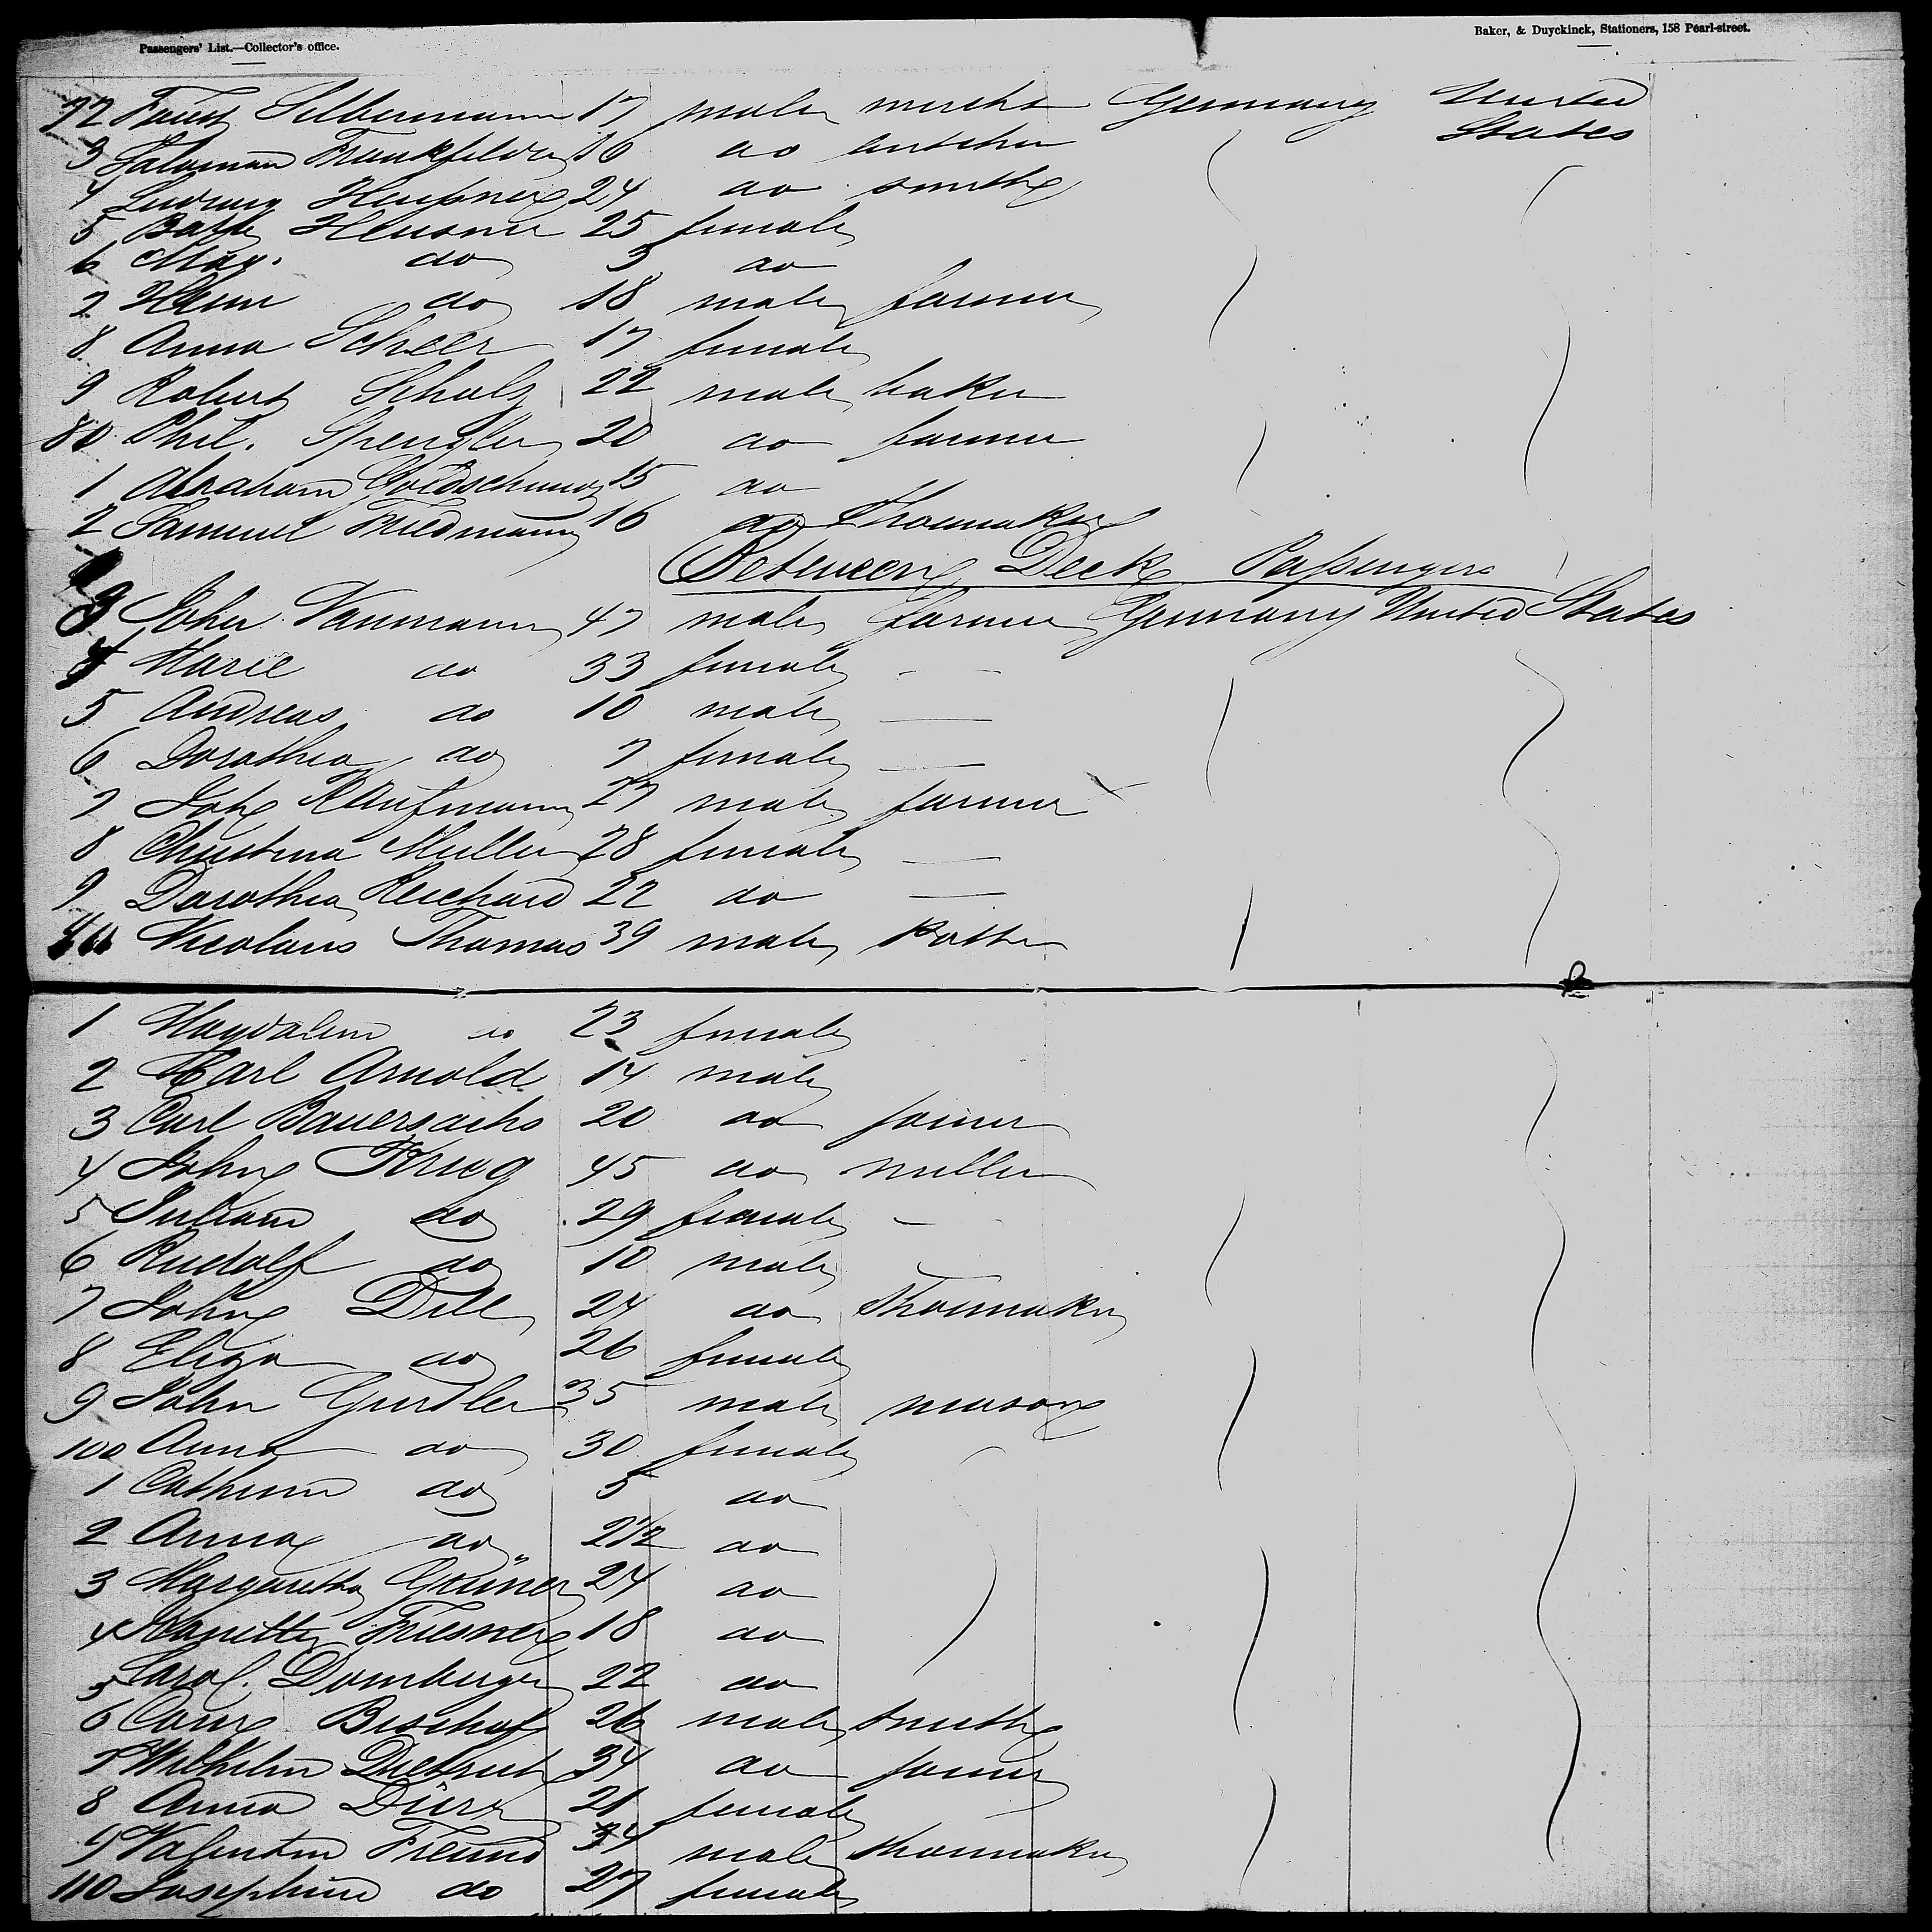 Passengers' List.—Collector's office.
Baker, & Duyckinck, Stationers, 158 Pearl-street.
72 Silbermann 17 male Germany United
3 Salomon Frankfelder 16 do butcher States
4 Ludwig 24 do smith
5 Heusner 25 female
6 Mag. do 3 do
7 do 18 male farmer
8 Anna Scheer 17 female
9 Robert Schulz 22 male baker
80 Phil. Spengler 20 do farmer
1 Abraham Goldschmid 15 do
2 Samuel Friedmann 16 do Shoemaker
Between Deck Passengers
3 John Naumann 47 male farmer Germany United States
4 Marie do 33 female — —
5 Andreas do 10 male —
6 Dorothea do 7 female —
7 Joh Kaufmann 27 male farmer
8 Christina Muller 28 female —
9 Dorothea Reichard 22 do —
Nicolaus Thomas 39 male
1 Magdalena do 23 female
2 Karl Arnold 14 male
3 Carl Bauersachs 20 do joiner
4 John Krug 45 do miller
5 do 29 female —
6 Rudolf do 10 male
7 John Dill 24 do Shoemaker
8 Eliza do 26 female
9 John Gundler 35 male mason
100 Anna do 30 female
1 Catherina do 5 do
2 Anna do 2 1/2 do
3 Margaretha Grüner 24 do
4 Nanette Friesner 18 do
5 Carol. Domberger 22 do
6 Bischof 26 male smith
7 Wilhelm Dietrich 34 do joiner
8 Anna Dürr 21 female
9 Valentin Freund 34 male shoemaker
110 Josephine do 27 female